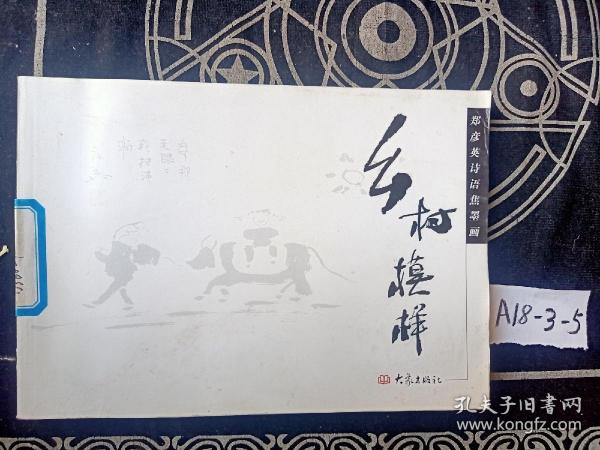 郑彦英诗语焦墨画
乡村模样
大象出版社
A18-3-5
孔夫子旧书网
www.kongfz.com